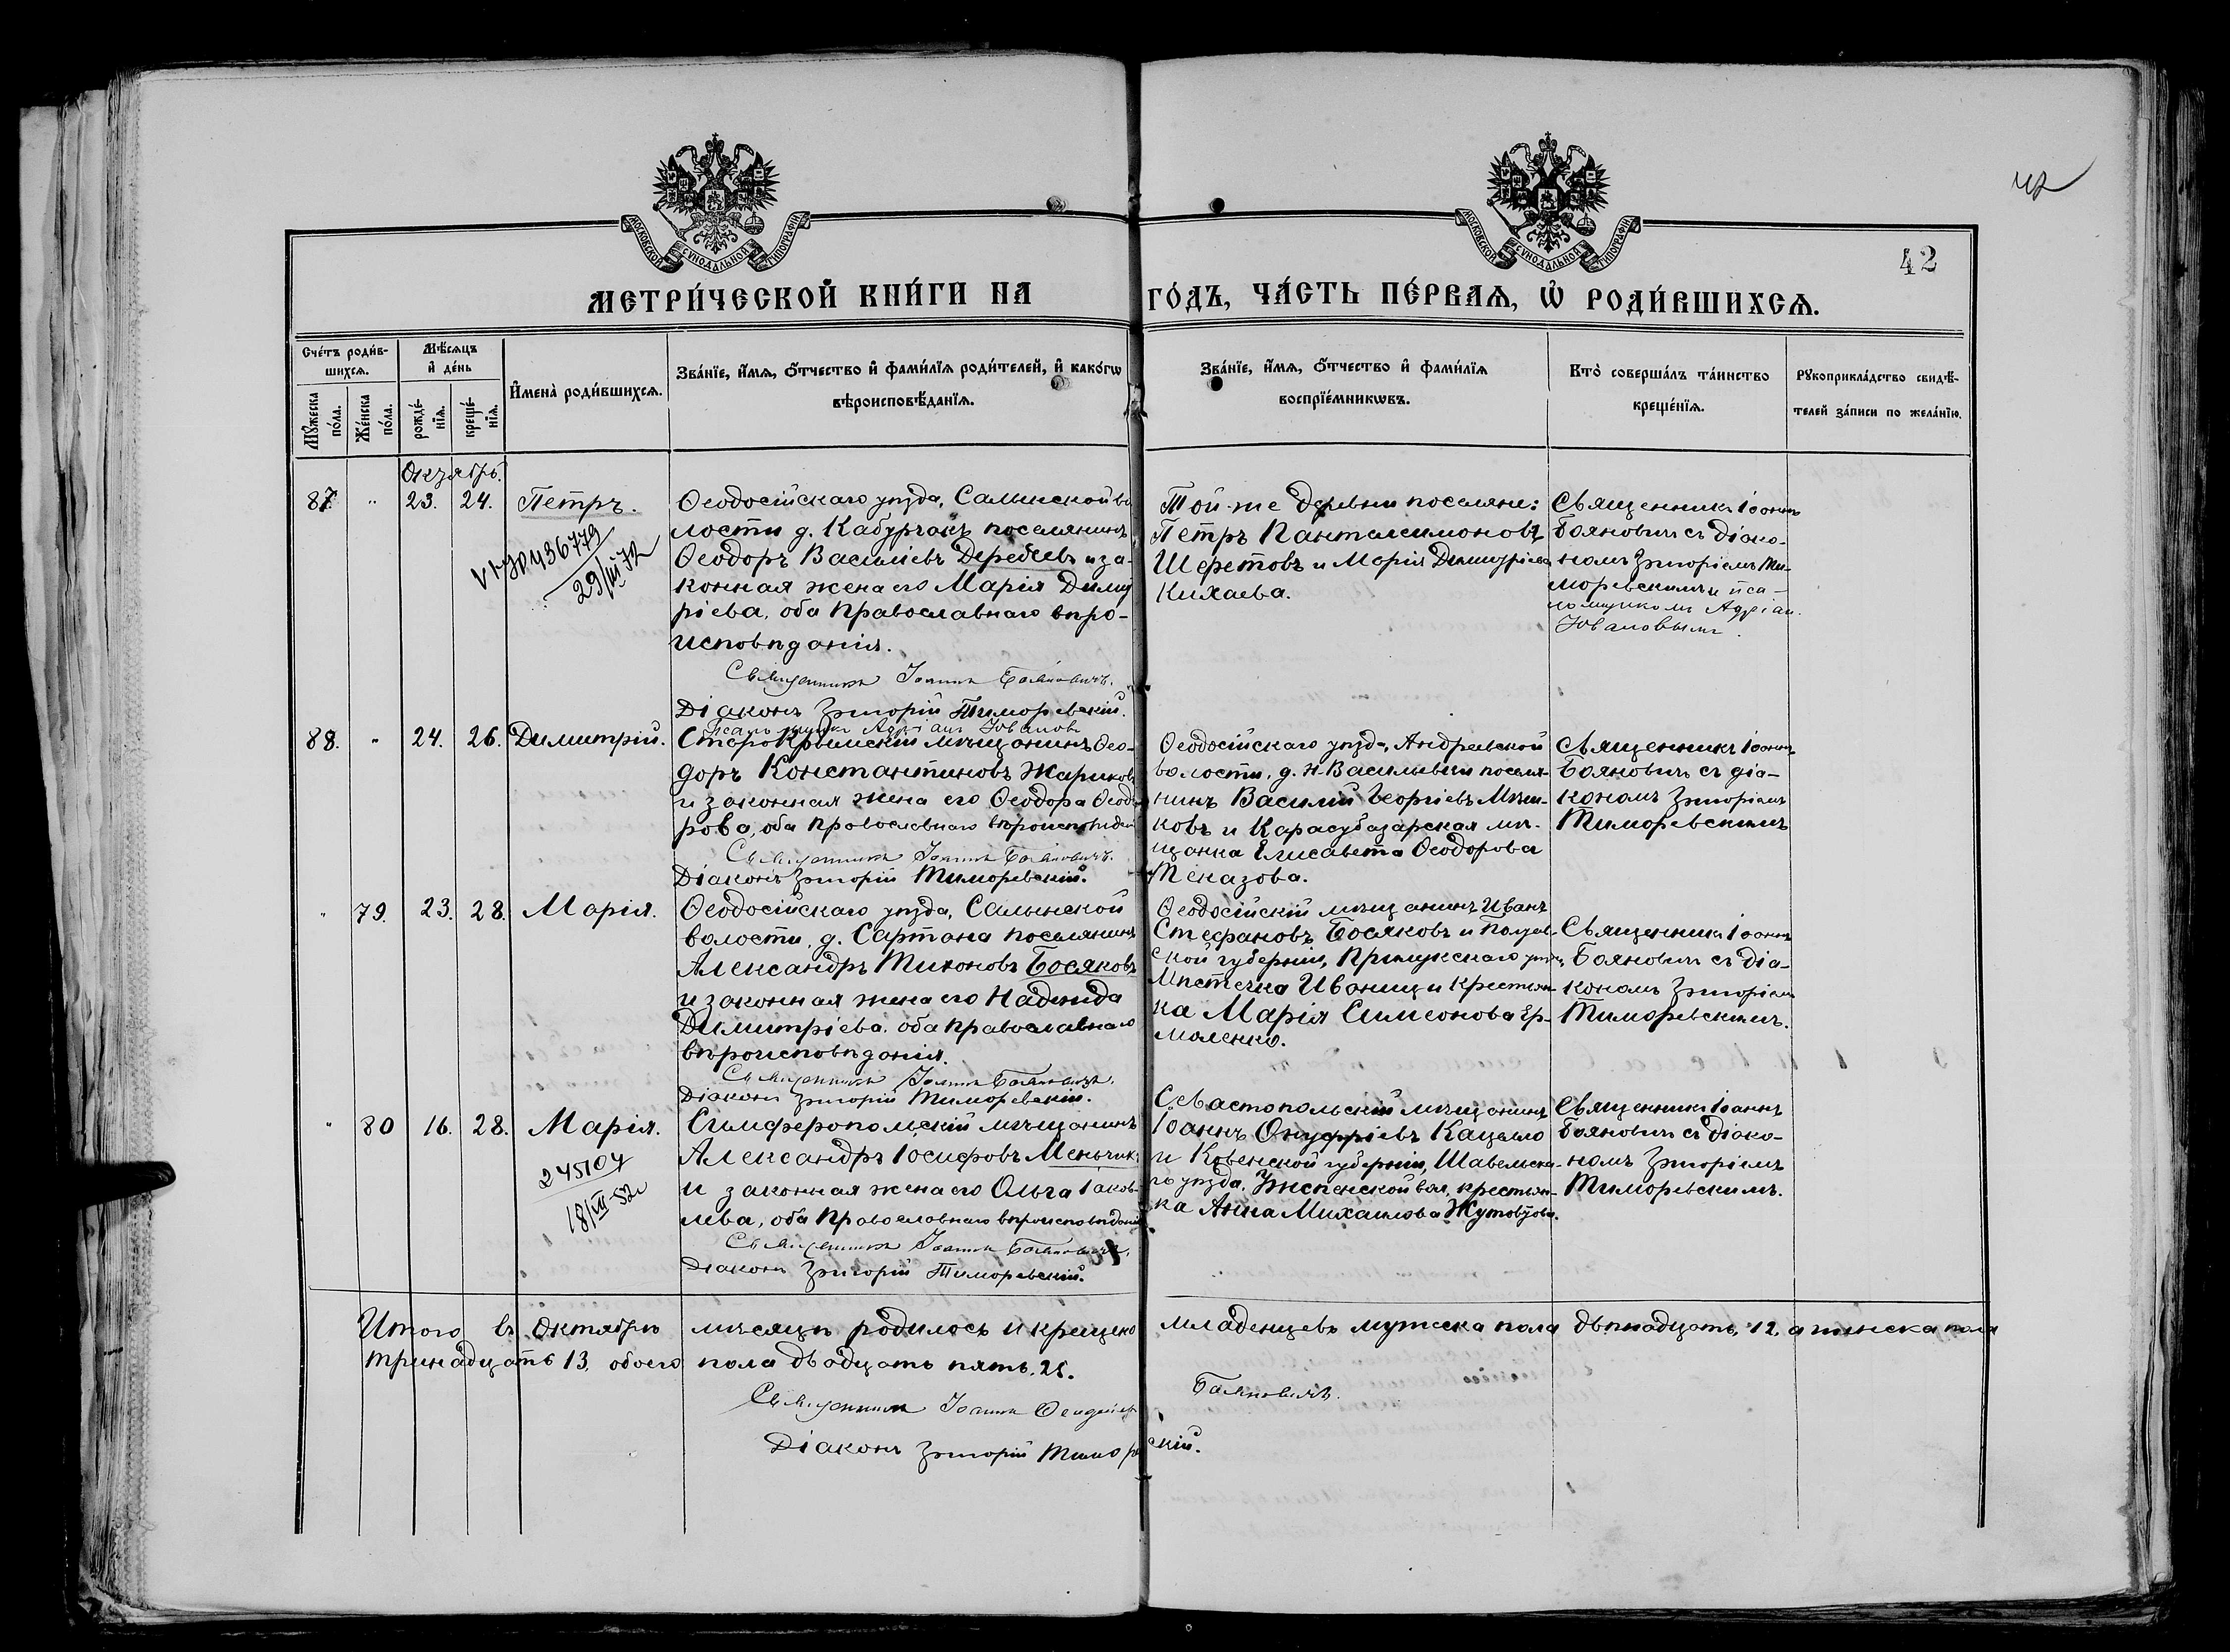 42
42
МОСКОВСКОЙ СѴНОДАЛЬНОЙ ТИПОГРАФІИ
МОСКОВСКОЙ СѴНОДАЛЬНОЙ ТИПОГРАФІИ
МЕТРИ́ЧЕСКОЙ КНИ́ГИ НА ГО́ДЪ, ЧА́СТЬ ПЕ́РВАѦ, Ѡ҆ РОДИ́ВШИХСѦ.
Сче́тъ роди́в-
шихсѧ.
Мꙋ́жеска по́ла.
Же́нска по́ла.
Мѣ́сѧцъ
и҆ де́нь
рожде́-
нїѧ.
креще́-
нїѧ.
И҆мена̀ роди́вшихсѧ.
Зва́нїе, и҆́мѧ, ѻ҆́тчество и҆ фами́лїѧ роди́телей, и҆ како́гѡ
вѣроисповѣ́данїѧ.
Зва́нїе, и҆́мѧ, ѻ҆́тчество и҆ фами́лїѧ
воспрїе́мникѡвъ.
Кто̀ соверша́лъ та́инство
креще́нїѧ.
Рꙋкоприкла́дство свидѣ́-
телей за́писи по жела́нїю.
Октябрь.
87. " 23. 24. Петръ.
Ѳеодосійскаго уѣзда, Салынской во
лости д. Кабурчакъ поселянинъ
Ѳеодоръ Василіевъ Деребеевъ и за-
конная жена его Марія Димит
ріева, оба православнаго вѣро-
исповѣданія.
Священникъ Іоаннъ Бояновичъ.
Діаконъ Григорій Тиморевскій.
Псаломщикъ Адріанъ Іовановъ
29/III 72
Той-же деревни поселяне:
Петръ Пантелеимоновъ
Шеретовъ и Марія Димитріева
Кихаева.
Священникъ Іоаннъ
Бояновичъ съ діако-
номъ Григоріемъ Ти-
моревскимъ и пса-
ломщикомъ Адріан.
Іовановымъ.
88. " 24. 26. Димитрій.
СтароКрымскій мѣщанинъ Ѳео-
доръ Константиновъ Жариковъ
и законная жена его Ѳеодора Ѳеодо
рова, оба православнаго вѣроисповѣдан
Священникъ Іоаннъ Бояновичъ.
Діаконъ Григорій Тиморевскій.
Ѳеодосійскаго уѣзда, Андреевской
волости, д. Н-Васильевки поселя-
нинъ Василій Георгіевъ
и Карасубазарская мѣ-
щанка Елисавета Ѳеодорова
Теказова.
Священникъ Іоаннъ
Бояновичъ съ діа-
кономъ Григоріемъ
Тиморевскимъ
" 79. 23. 28. Марія.
Ѳеодосійскаго уѣзда, Салынской
волости, д. Сартана поселянинъ
Александръ Тихоновъ Босяковъ
и законная жена его Надежда
Димитріева, оба православнаго
вѣроисповѣданія.
Священникъ Іоаннъ Бояновичъ.
Діаконъ Григорій Тиморевскій.
Ѳеодосійскій мѣщанинъ Иванъ
Стефановъ Босяковъ и Полтав-
ской губерніи, Прилукскаго уѣзда,
Мѣстечка Иваницы крестьян-
ка Марія Симеонова Ер-
моленко.
Священникъ Іоаннъ
Бояновичъ съ діа-
кономъ Григоріемъ
Тиморевскимъ.
" 80 16. 28. Марія.
245104
18/VII-52
Симферопольскій мѣщанинъ
Александръ Іосифовъ Меньчик
и законная жена его Ольга Іаков-
лева, оба православнаго вѣроисповѣданія
Священникъ Іоаннъ Бояновичъ.
Діаконъ Григорій Тиморевскій.
Севастопольскій мѣщанинъ
Іоаннъ Онуфріевъ Кацелло
и Ковенской губерніи, Шавельска-
го уѣзда, вол. крестьян-
ка Анна Михаилова
Священникъ Іоаннъ
Бояновичъ съ діако-
номъ Григоріемъ
Тиморевскимъ.
Итого въ Октябрѣ мѣсяцѣ родилось и крещено младенцевъ мужеска пола двѣнадцать, 12, а женска пола
тринадцать 13, обоего пола двадцать пять. 25.
Священникъ Іоаннъ Бояновичъ.
Діаконъ Григорій Тиморевскій.